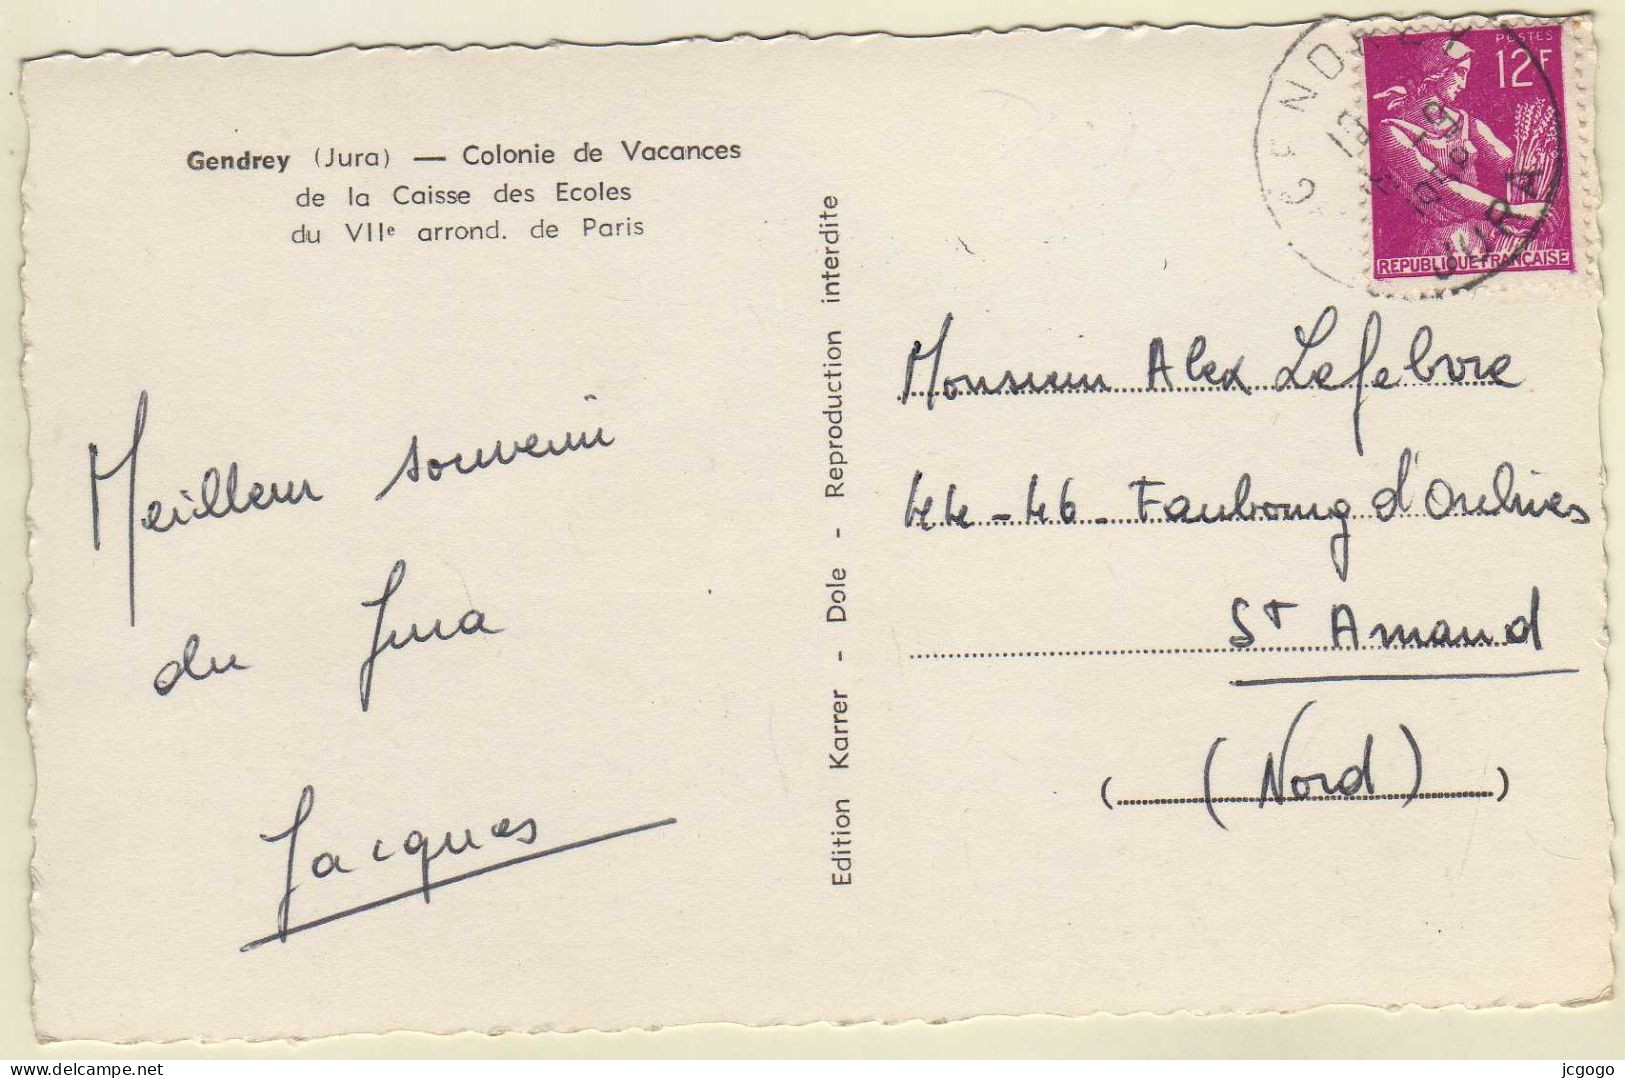 Gendrey (Jura) — Colonie de Vacances
de la Caisse des Ecoles
du VIIe arrond. de Paris
Meilleur souvenir
du Jura
Jacques
Edition Karrer - Dole - Reproduction interdite
GENDREY
JURA
POSTES
12F
REPUBLIQUE FRANÇAISE
Monsieur Alex Lefebvre
44-46- Faubourg d'Orchies
St Amand
(Nord)
delcampe.net
jcgogo